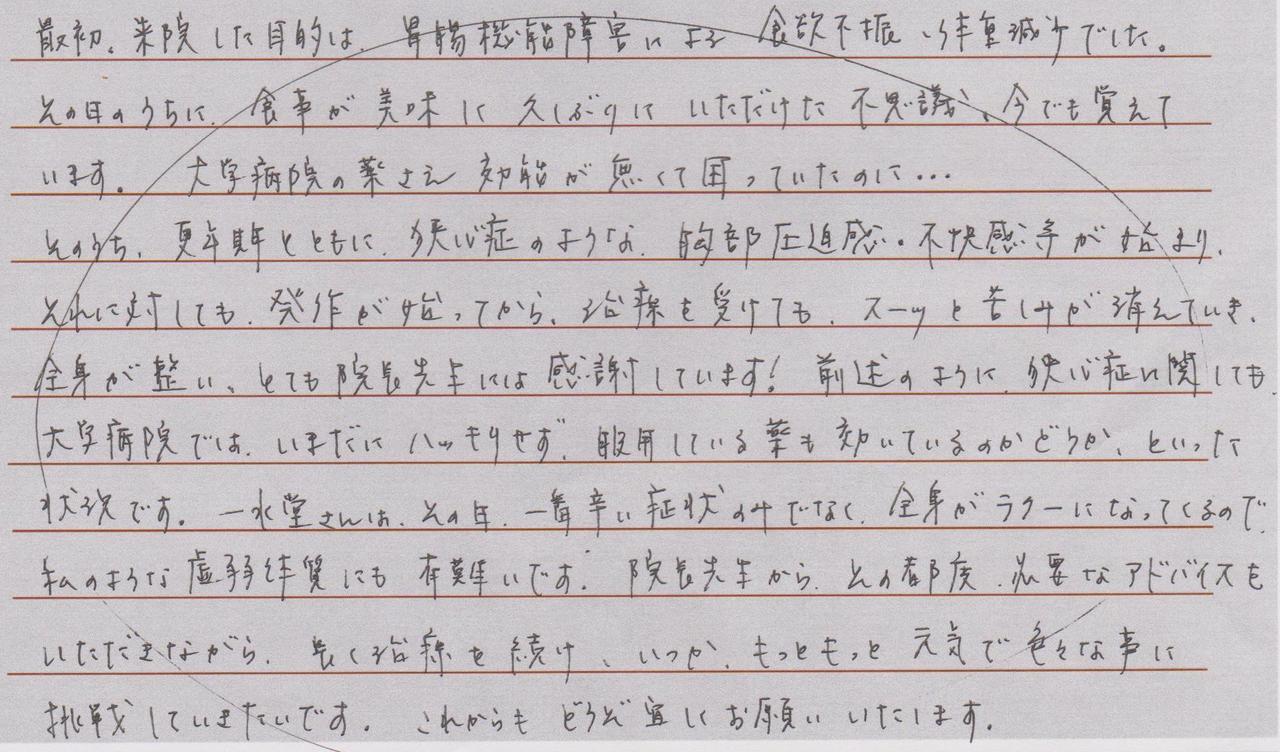 最初、来院した目的は、胃腸機能障害による 食欲不振、体重減少でした。
その日のうちに、食事が 美味に 久しぶりに いただけた 不思議、今でも覚えて
います。 大学病院の薬さえ 効能が 無くて困っていたのに…
そのうち、更年期とともに、狭心症のような、胸部圧迫感・不快感等が始まり、
それに対しても、発作が始ってから、治療を受けても、スーッと苦しみが消えていき、
全身が整い、とても院長先生には感謝しています! 前述のように、狭心症に関しても、
大学病院では、いまだにハッキリせず、服用している薬も効いているのかどうか、といった
状況です。 一水堂さんは、その日、一番辛い症状のみでなく、全身がラクーになってくるので、
私のような虚弱体質にも 有難いです。 院長先生から、その都度、必要なアドバイスを
いただきながら、長く治療を続け、いつか、もっともっと 元気で色々な事に
挑戦していきたいです。 これからも どうぞ宜しくお願いいたします。